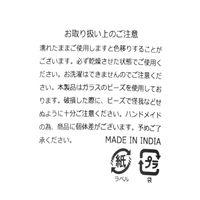 お取り扱い上のご注意
濡れたままご使用しますと色移りすることが
ございます。必ず乾燥させた状態でご使用く
ださい。お洗濯はできませんのでご注意くだ
さい。本製品はガラスのビーズを使用してお
ります。破損した際に、ビーズで怪我などせ
ぬように十分ご注意ください。ハンドメイド
の為、商品に個体差がございます。予めご了
承ください。
MADE IN INDIA
紙 プラ
ラベル 袋